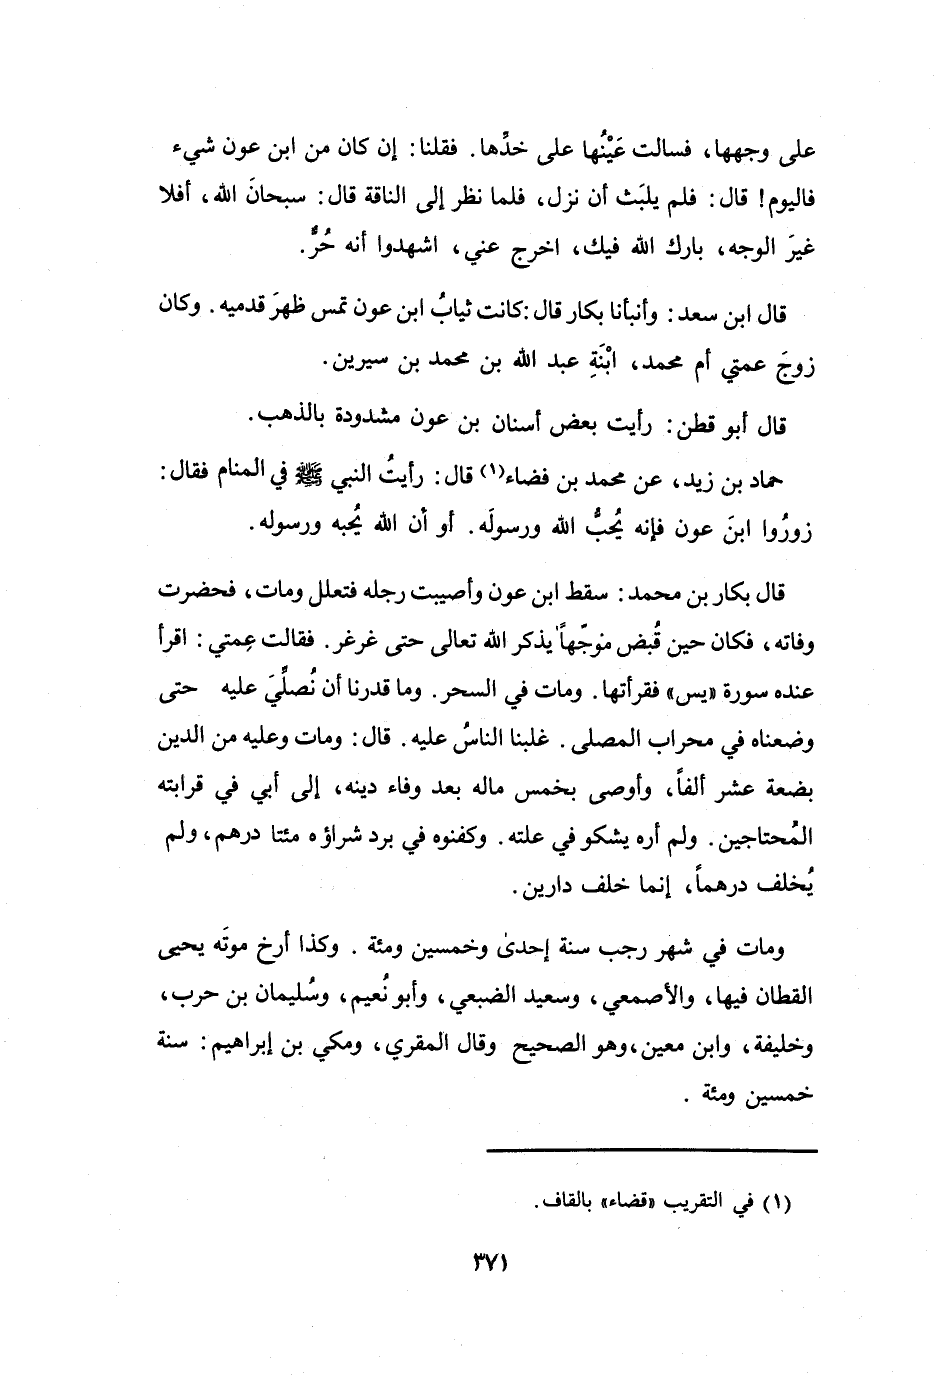 على وجهها، فسالت عَيْنُها على خدِّها. فقلنا: إن كان من ابن عون شيء
فاليوم! قال: فلم يلبَث أن نزل، فلما نظر إلى الناقة قال: سبحانَ الله، أفلا
غيرَ الوجه، بارك الله فيك، اخرج عني، اشهدوا أنه حُرٌّ.
قال ابن سعد: وأنبأنا بكار قال: كانت ثيابُ ابن عون تمس ظهرَ قدميه. وكان
زوجَ عمتي أم محمد، ابْنَةِ عبد الله بن محمد بن سيرين.
قال أبو قطن: رأيت بعض أسنان بن عون مشدودة بالذهب.
حماد بن زيد، عن محمد بن فضاء(١) قال: رأيتُ النبي ﷺ في المنام فقال:
زورُوا ابنَ عون فإنه يُحبُّ الله ورسولَه. أو أن الله يُحبه ورسوله.
قال بكار بن محمد: سقط ابن عون وأصيبت رجله فتعلل ومات، فحضرت
وفاته، فكان حين قُبض موَجّهاً يذكر الله تعالى حتى غرغر. فقالت عِمتي: اقرأ
عنده سورة «يس» فقرأتها. ومات في السحر. وما قدرنا أن نُصلِّيَ عليه حتى
وضعناه في محراب المصلى. غلبنا الناسُ عليه. قال: ومات وعليه من الدين
بضعة عشر ألفاً، وأوصى بخمس ماله بعد وفاء دينه، إلى أبي في قرابته
المُحتاجين. ولم أره يشكو في علته. وكفنوه في برد شراؤه مئتا درهم، ولم
يُخلف درهماً، إنما خلف دارين.
ومات في شهر رجب سنة إحدىٰ وخمسين ومئة . وكذا أرخ موتَه يحيى
القطان فيها، والأصمعي، وسعيد الضبعي، وأبو نُعيم، وسُليمان بن حرب،
وخليفة، وابن معين، وهو الصحيح وقال المقري، ومكي بن إبراهيم: سنة
خمسين ومئة .
(١) في التقريب «قضاء» بالقاف.
٣٧١